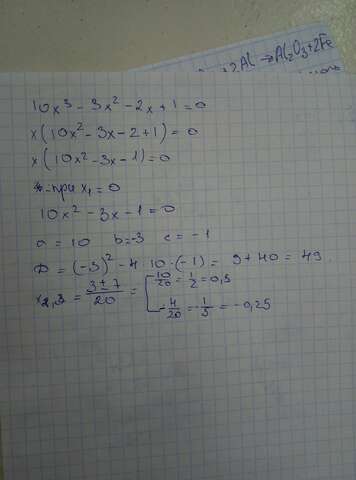 +2Al → Al₂O₃+2Fe
10x³ - 3x² - 2x + 1 = 0
x(10x² - 3x - 2 + 1) = 0
x(10x² - 3x - 1) = 0
при x₁ = 0
10x² - 3x - 1 = 0
a = 10 b = -3 c = -1
D = (-3)² - 4 · 10 · (-1) = 9 + 40 = 49.
x₂,₃ = 3 ± 7 / 20 = [ 10/20 = 1/2 = 0,5
- 4/20 = - 1/5 = - 0,25